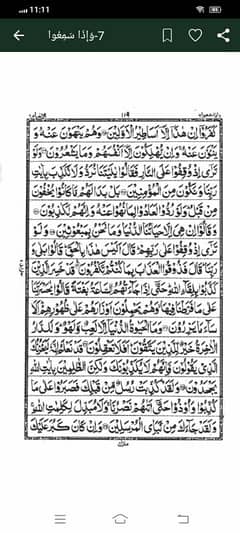 11:11
7-وَاِذَا سَمِعُوا
كَفَرُوْۤا اِنْ هٰذَاۤ اِلَّاۤ اَسَاطِيْرُ الْاَوَّلِيْنَ وَهُمْ يَنْهَوْنَ عَنْهُ وَ
يَنْـَٔوْنَ عَنْهُ وَاِنْ يُّهْلِكُوْنَ اِلَّاۤ اَنْفُسَهُمْ وَمَا يَشْعُرُوْنَ وَلَوْ
تَرٰۤى اِذْ وُقِفُوْا عَلَى النَّارِ فَقَالُوْا يٰلَيْتَنَا نُرَدُّ وَلَا نُكَذِّبَ بِاٰيٰتِ
رَبِّنَا وَنَكُوْنَ مِنَ الْمُؤْمِنِيْنَ بَلْ بَدَا لَهُمْ مَّا كَانُوْا يُخْفُوْنَ
مِنْ قَبْلُ وَلَوْ رُدُّوْا لَعَادُوْا لِمَا نُهُوْا عَنْهُ وَاِنَّهُمْ لَكٰذِبُوْنَ
وَقَالُوْۤا اِنْ هِيَ اِلَّا حَيَاتُنَا الدُّنْيَا وَمَا نَحْنُ بِمَبْعُوْثِيْنَ وَلَوْ
تَرٰۤى اِذْ وُقِفُوْا عَلٰى رَبِّهِمْ قَالَ اَلَيْسَ هٰذَا بِالْحَقِّ قَالُوْا بَلٰى وَ
رَبِّنَا قَالَ فَذُوْقُوا الْعَذَابَ بِمَا كُنْتُمْ تَكْفُرُوْنَ قَدْ خَسِرَ الَّذِيْنَ
كَذَّبُوْا بِلِقَآءِ اللّٰهِ حَتّٰۤى اِذَا جَآءَتْهُمُ السَّاعَةُ بَغْتَةً قَالُوْا يٰحَسْرَتَنَا
عَلٰى مَا فَرَّطْنَا فِيْهَا وَهُمْ يَحْمِلُوْنَ اَوْزَارَهُمْ عَلٰى ظُهُوْرِهِمْ اَلَا
سَآءَ مَا يَزِرُوْنَ وَمَا الْحَيٰوةُ الدُّنْيَاۤ اِلَّا لَعِبٌ وَّلَهْوٌ وَلَلدَّارُ
الْاٰخِرَةُ خَيْرٌ لِّلَّذِيْنَ يَتَّقُوْنَ اَفَلَا تَعْقِلُوْنَ قَدْ نَعْلَمُ اِنَّهٗ لَيَحْزُنُكَ
الَّذِيْ يَقُوْلُوْنَ فَاِنَّهُمْ لَا يُكَذِّبُوْنَكَ وَلٰكِنَّ الظّٰلِمِيْنَ بِاٰيٰتِ اللّٰهِ
يَجْحَدُوْنَ وَلَقَدْ كُذِّبَتْ رُسُلٌ مِّنْ قَبْلِكَ فَصَبَرُوْا عَلٰى مَا
كُذِّبُوْا وَاُوْذُوْا حَتّٰۤى اَتٰىهُمْ نَصْرُنَا وَلَا مُبَدِّلَ لِكَلِمٰتِ اللّٰهِ
وَلَقَدْ جَآءَكَ مِنْ نَّبَاِی الْمُرْسَلِيْنَ وَاِنْ كَانَ كَبُرَ عَلَيْكَ